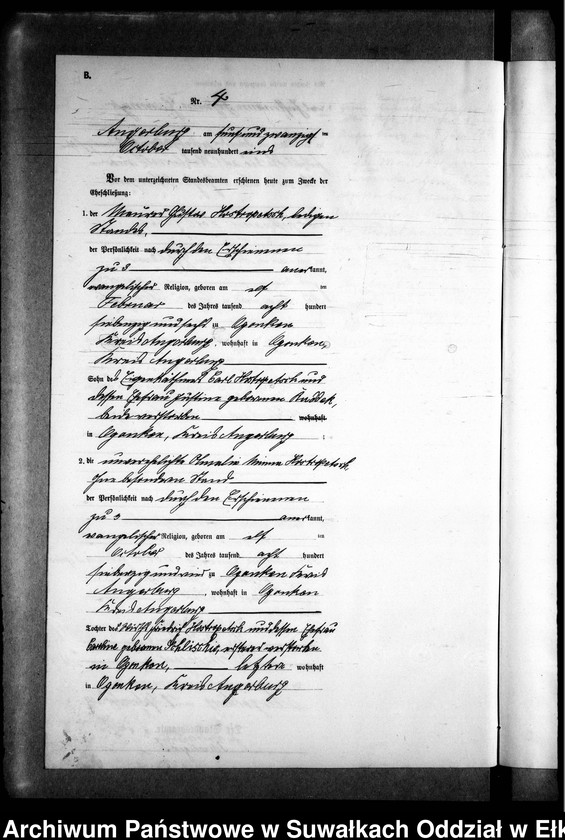 B.
Nr. 4
Angerburg am fünfundzwanzigsten
October tausend neunhundert eins
Vor dem unterzeichneten Standesbeamten erschienen heute zum Zwecke der
Eheschließung:
1. der Maurer Gustav ledigen
Standes,
der Persönlichkeit nach durch den Erschienenen
zu 3 anerkannt,
evangelischer Religion, geboren am elf ten
Februar des Jahres tausend acht hundert
siebenzig und sechs zu Ogonken
Kreis Angerburg, wohnhaft in Ogonken,
Kreis Angerburg
Sohn des Eigenkäthners Carl und
dessen Ehefrau Justine geborenen
beide verstorben wohnhaft
in Ogonken, Kreis Angerburg ;
2. die unverehelichte Amalie Minna
ohne besonderen Stand
der Persönlichkeit nach durch den Erschienenen
zu 3 anerkannt,
evangelischer Religion, geboren am elf ten
October des Jahres tausend acht hundert
siebenzig und zu Ogonken Kreis
Angerburg, wohnhaft in Ogonken
Kreis Angerburg
Tochter des und dessen Ehefrau
geborenen ersterer verstorben
in Ogonken, letztere wohnhaft
in Ogonken, Kreis Angerburg
Archiwum Państwowe w Suwałkach Oddział w Ełk